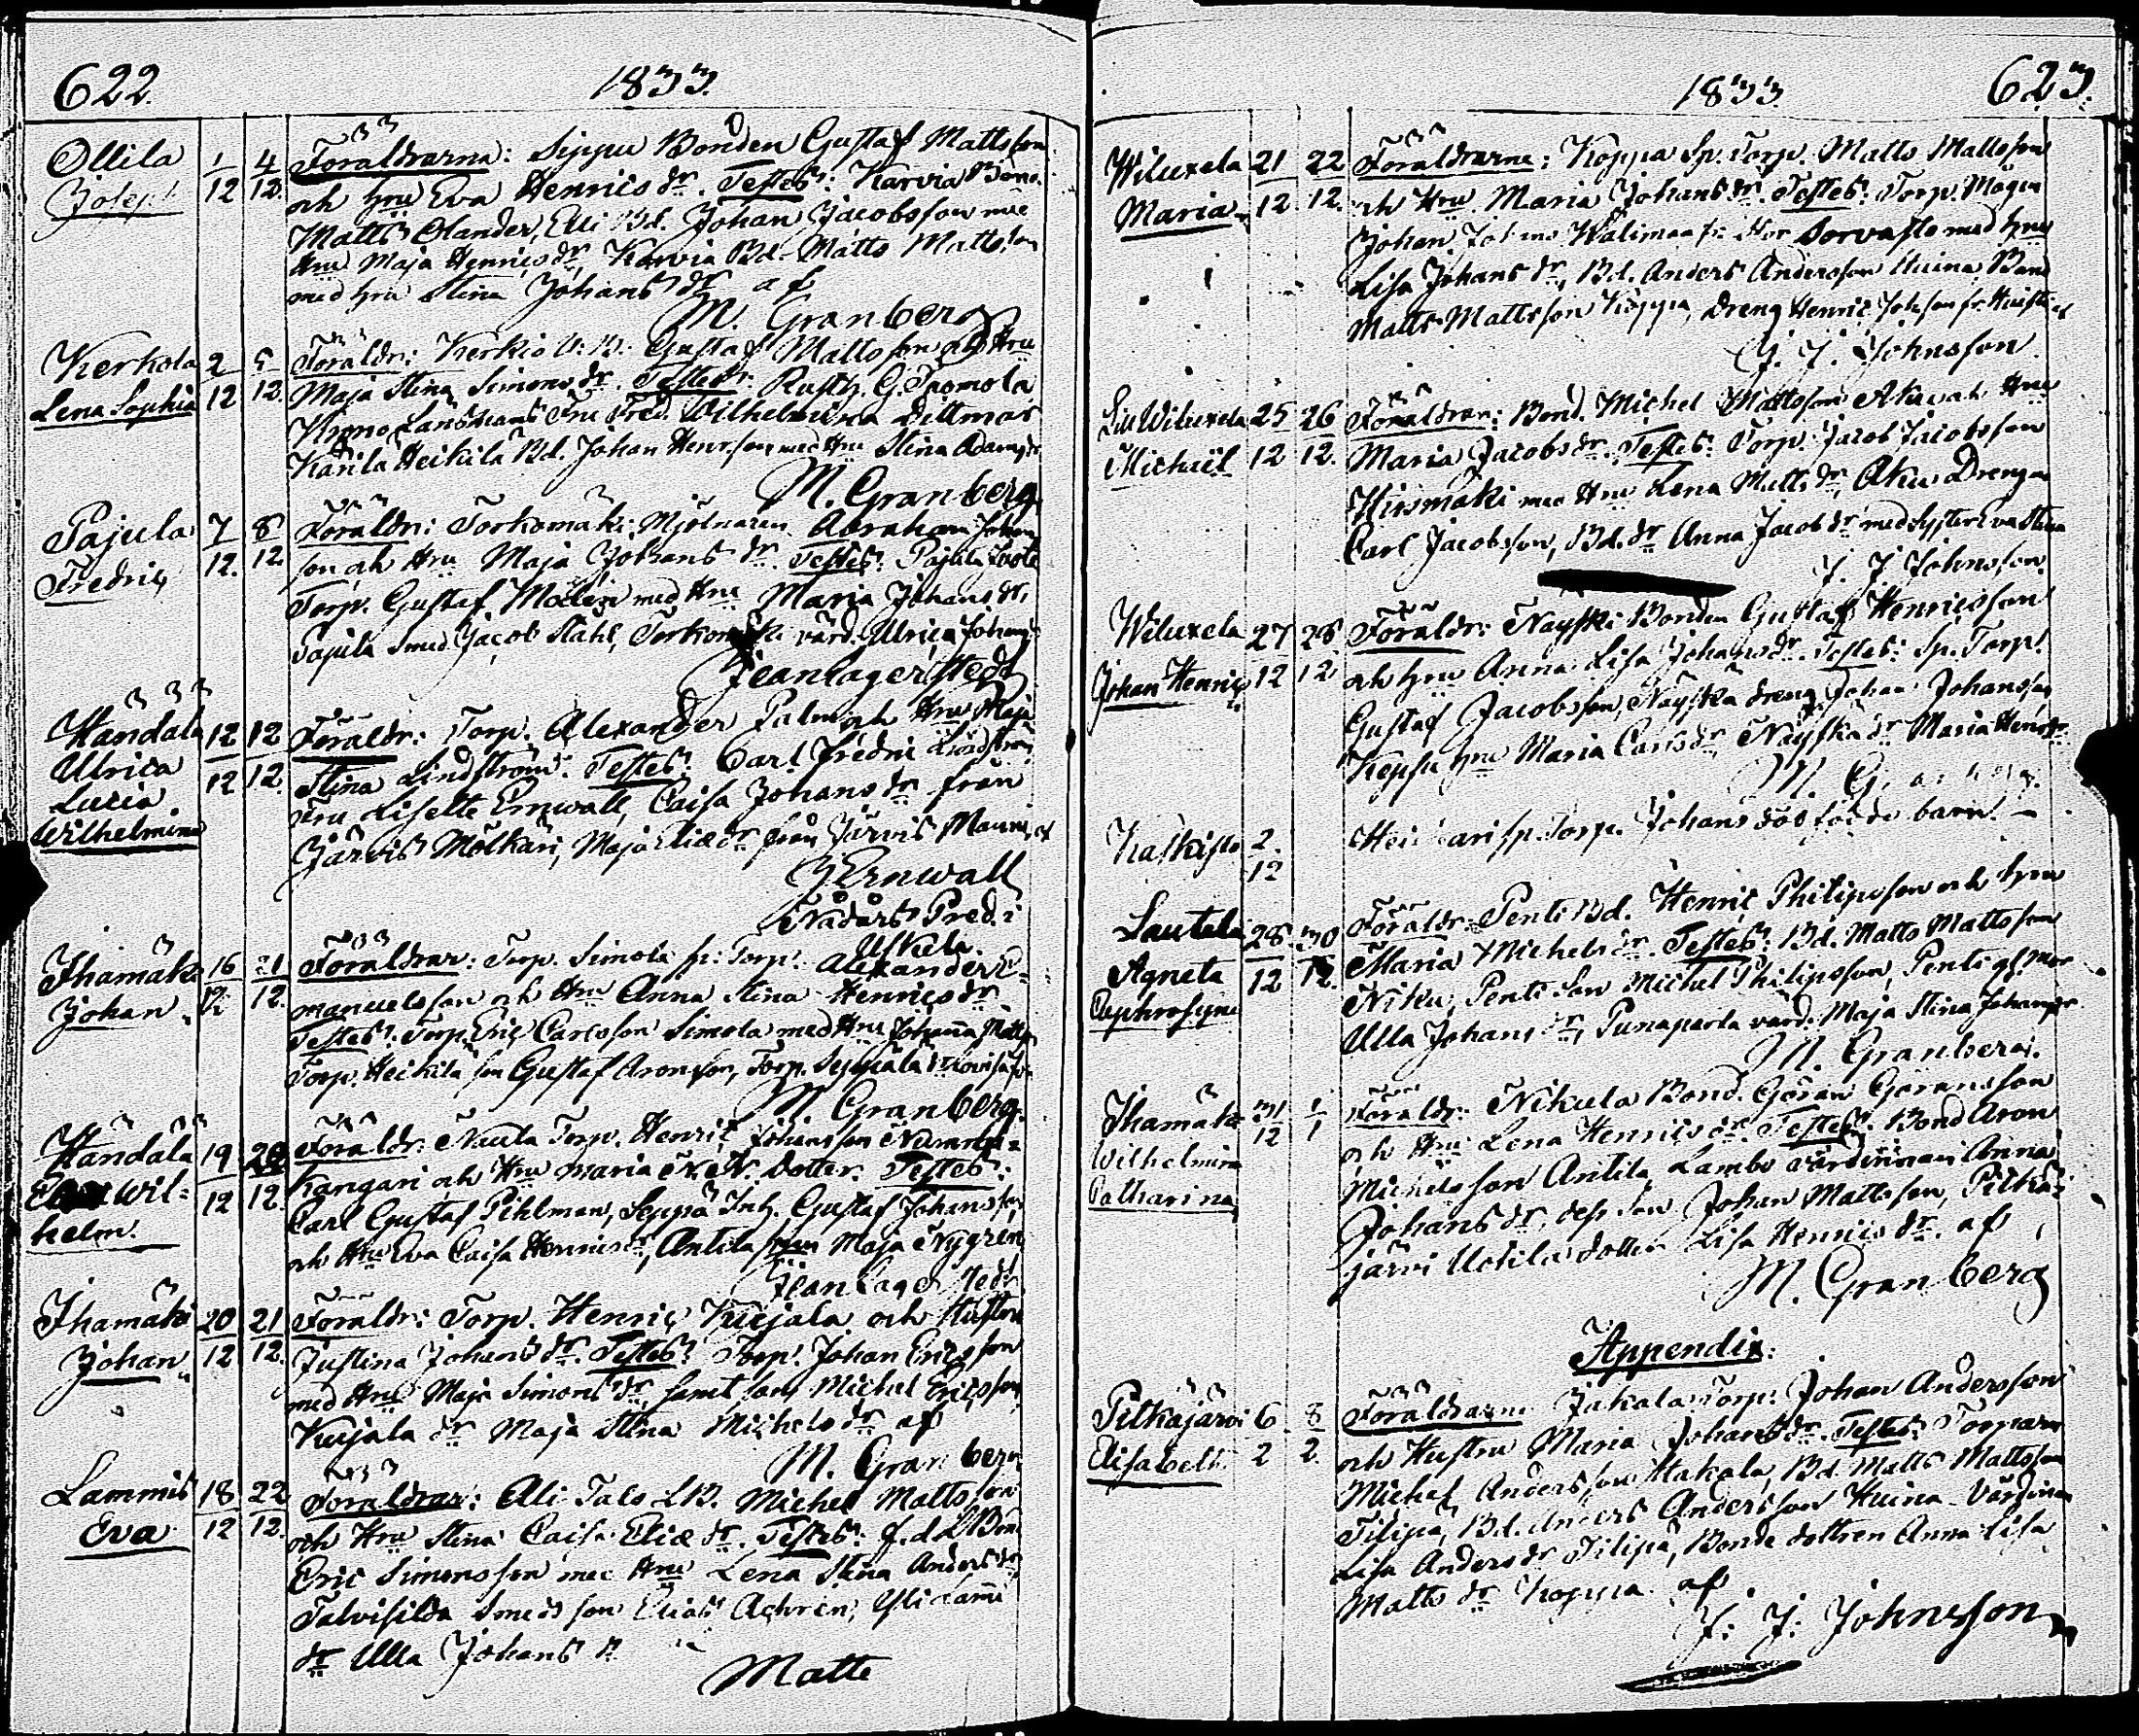 622.
1833.
Ollila 1/12 4/12
Joseph
Föräldrarna: Sippu Bonden Gustaf Mattsson
och Hru Eva Henrics dr. Testes: Karvia Bond.
Matts Olander, Elli Bd. Johan Jacobsson med
Hru Maja Henrics dr Karvia Bd. Matts Mattsson
med hru Stina Johans dr af
M. Granberg
Kerkola 2/12 5/12
Lena Sophia
Föräldr: Kerkio Gustaf Mattsson och Hru
Maja Stina Simons dr. Testes: Rusth. G. Tuomola
Krono Länsmans Fru Fred. Wilhelmina Dittmar
Karila Heikilä Bd. Johan Henrsson med Hru Stina Adams dr
M. Granberg
Pajula 7/12 8/12
Fredric
Föräldr: Torkomäki Mjölnaren Abraham Johans
son och Hru Maja Johans dr. Testes: Pajula
Torp. Gustaf Molin med Hru Maria Johans dr,
Pajula smed Jacob Stahl, Torkomäki värd. Ulrica Johans
Jean Lagerstedt
Händälä 12/12 12/12
Ulrica
Lucia
Wilhelmina
Föräldr: Torp. Alexander Palm och Hru Maja
Stina Lindström. Testes: Carl Fredric Lindström
Fru Liselte Ernwall, Caisa Johans dr från
Järvis Mölkäri, Maja Eliæ dr från Järvis Mauri, af
J Ernwall
Nådårs Pred. i
Uskela.
Ihamäki 16/12 21/12
Johan
Föräldrar: Torp. Simola fr: Torp. Alexander E-
manuelsson och Hru Anna Stina Henrics dr.
Testes: Torp. Eric Carlsson Simola med Hru Johanna Matts
Torp. Heikilä son Gustaf Aronsson, Torp. Seppälä dr Lovisa
M. Granberg.
Händälä 19/12 20/12
Wil-
helm.
Föräldr: Nuuta Torp. Henric Johansson Nummen-
kangari och Hru Maria N. N. dotter. Testes:
Carl Gustaf Pihlman, Seppä Inh. Gustaf Johansson
och Hru Eva Caisa Henrics dr, Antila Maja Nygren
Jean Lagerstedt
Ihamäki 20/12 21/12
Johan
Föräldr: Torp. Henric Kujala och Hustru
Justina Johans dr. Testes: Torp. Johan Ericsson
med Hru Maja Simons dr samt son Michel Ericsson
Kujala dr Maja Stina Michels dr af
M. Granberg
Lammis 18/12 22/12
Eva
Föräldrar: Ali Talo LB. Michel Mattsson
och Hru Stina Caisa Eliæ dr. Testes: f. d. LBm
Eric Simonsson med Hru Lena Stina Anders dr
Talvisilda Smeds son Elias Achrén,
dr Ulla Johans dr
Matte
1833.
623.
Wiluxela 21/12 22/12
Maria
Föräldrarne: Koppa Sp. Torp. Matts Mattsson
och Hru Maria Johans dr. Testes: Torp. Mågen
Johan Johans Wälimaa fr: Hor Sorvasto med hru
Lisa Johans dr, Bd. Anders Andersson Huina Bond
Matts Mattsson Koppa, Dreng Henric Johsson fr: af
J. J. Johnsson.
Lill Wiluxela 25/12 26/12
Michaël
Föräldrar: Bond. Michel Mattsson Aku och Hru
Maria Jacobs dr. Testes: Torp. Jacob Jacobsson
Hirsmäki med Hru Lena Matts dr, Aku Drengen
Carl Jacobsson, Bd. dr Anna Jacobs dr med syster Eva Stina
J. J. Johnsson.
Wiluxela 27/12 28/12
Johan Henric
Föräldr: Näyski Bonden Gustaf Henricsson
och hru Anna Lisa Johans dr. Testes: Sp. Torp.
Gustaf Jacobsson, Näyskä dreng Johan Johansson
Keppu hru Maria Carls dr Näyskä dr Maria Henrs dr
M. Granberg.
Kaskisto 2/12
sp. Torp. Johans död födde barn. —
Lautela 28/12 30/12
Agneta
Euphrosyne
Föräldr: Penti Bd. Henric Philipsson och hru
Maria Michels dr. Testes: Bd. Matts Mattsson
Niku, Penti Son Michel Philipsson, Penti gl. Mor
Ulla Johans dr, Punaparta värd. Maja Stina Johans dr
M. Granberg.
Ihamäki 31/12 1/1
Wilhelmina
Catharina
Föräldr: Nikula Bond. Göran Göransson
och Hru Lena Henrics dr. Testes: Bond Aron
Michelsson Antila, Lambo värdinnan Anna
Johans dr, dess son Johan Mattsson, Pitkä-
järvi Uotila dotter Lisa Henrics dr. af
M. Granberg
Appendix:
Pitkäjärvi 6/2 8/2
Elisabeth
Föräldrarne Jakala Torp: Johan Andersson
och Hustru Maria Johans dr. Testes: Torparen
Michel Andersson Hakala, Bd. Matts Mattsson
Filipa, Bd. Anders Andersson Huina Värdinnan
Lisa Anders dr Filipa, Bonde dottren Anna Lisa
Matts dr Koppa af
J: J: Johnsson